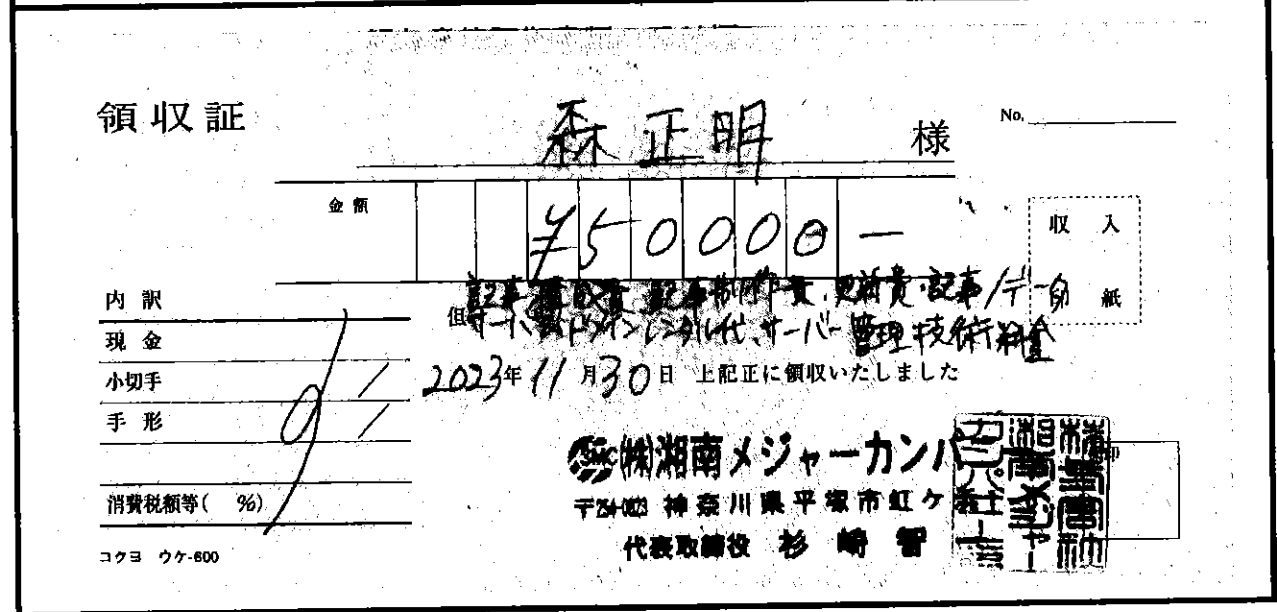 領収証
森正明 様
No.
金額 ¥50000-
収入
印紙
内訳
現金
小切手
手形
消費税額等( %)
但 記事 記事制作費、更新費・記事/データ
サーバー ドメインレンタル代、サーバー管理技術料金
2023年11月30日 上記正に領収いたしました
(株)湘南メジャーカンパニー
神奈川県平塚市虹ケ
代表取締役 杉崎 智
印
コクヨ ウケ-600